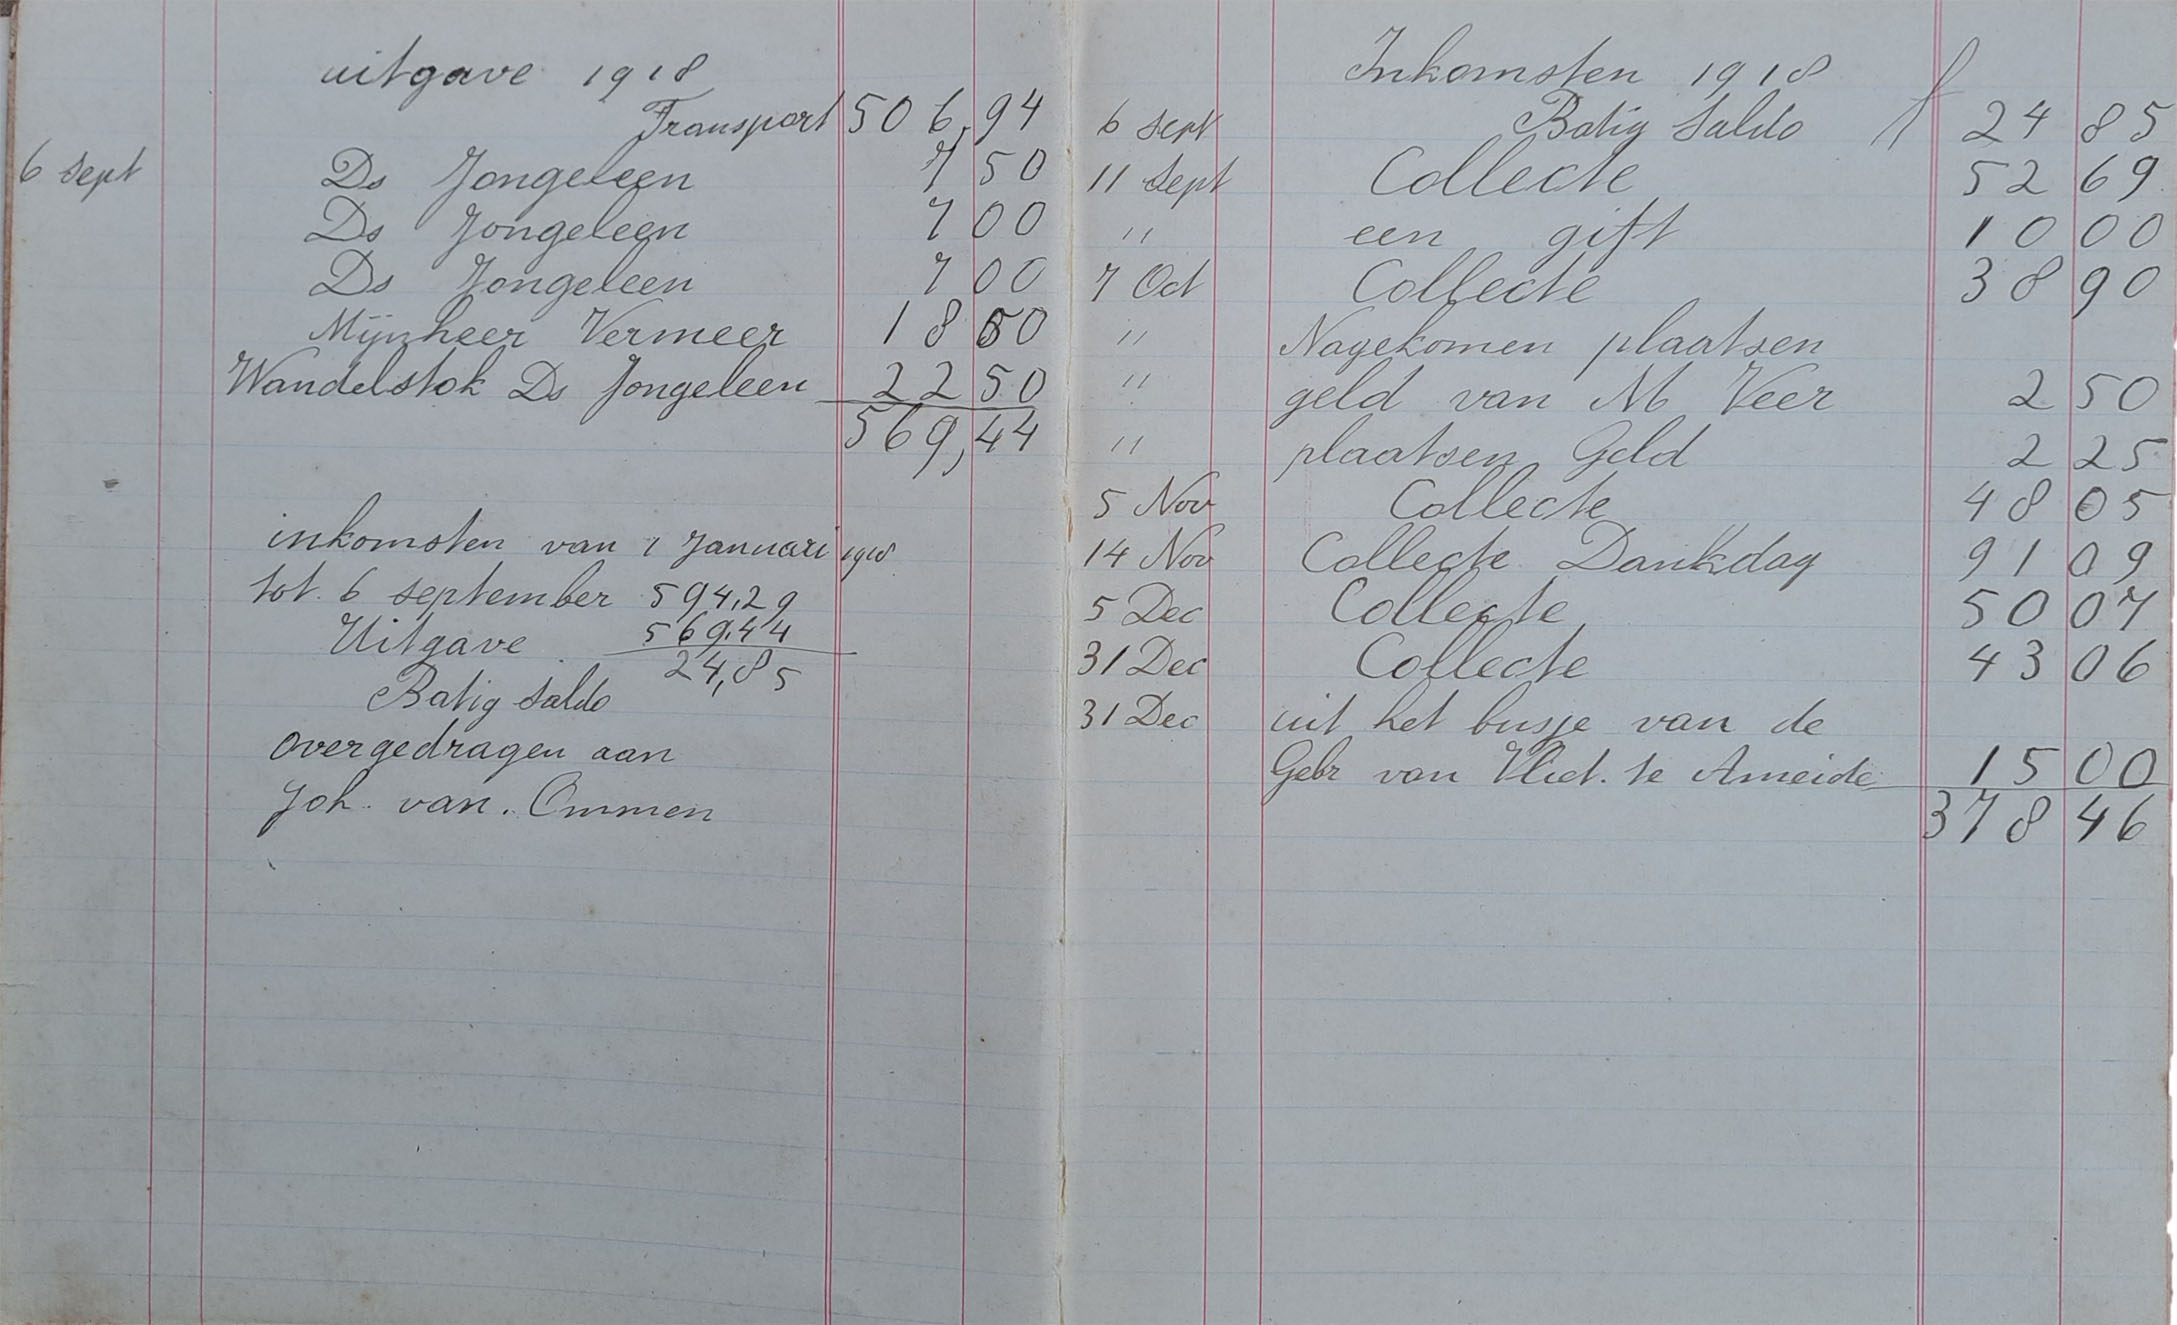 uitgave 1918
Transport 506,94
6 sept Ds Jongeleen 7 50
Ds Jongeleen 7 00
Ds Jongeleen 7 00
Mijnheer Vermeer 18 50
Wandelstok Ds Jongeleen 22 50
569,44
inkomsten van 1 Januari 1918
tot 6 september 594,29
Uitgave 569,44
24,85
Batig saldo
overgedragen aan
Joh. van. Ommen
Inkomsten 1918
6 sept Batig Saldo f 24 85
11 sept Collecte 52 69
" een gift 10 00
7 Oct Collecte 38 90
" Nagekomen plaatsen
" geld van M Veer 2 50
" plaatsen Geld 2 25
5 Nov Collecte 48 05
14 Nov Collecte Dankdag 91 09
5 Dec Collecte 50 07
31 Dec Collecte 43 06
31 Dec uit het busje van de
Gebr van Vliet. te Ameide 15 00
378 46